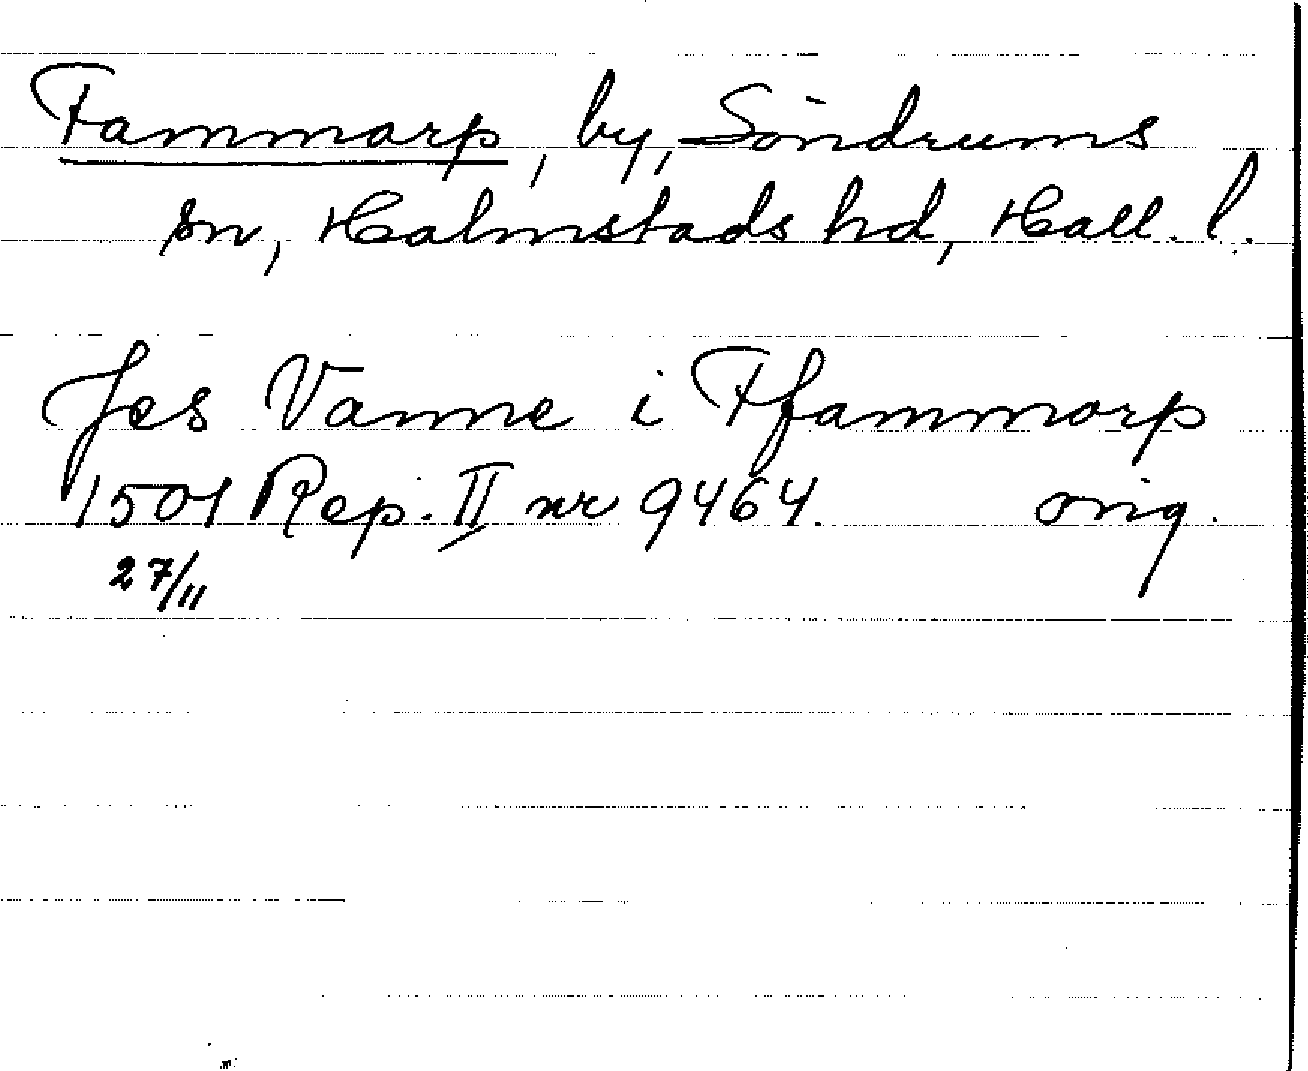 Fammarp, by, Söndrums
sn, Halmstads hd, Hall. l.
Jes Vanne i Ffammorp
1501 Rep. II nr 9464. orig.
27/11